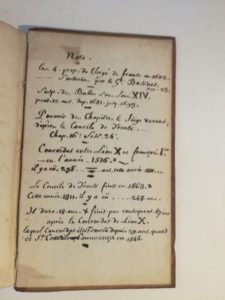 Nota.
Les 4. prop. du Clergé de france en 1682.
par le G. Bossuet.
Susp. de Bulles s. Leon XIV,
pend. 12 ans, dep. 1681. j. 1693.
Pouvoir des Chapitres le Siège vacant,
d'après le Concile de Trente.
Chap. 16. Sess. 24.
Concordat entre Léon X et françois I.er
en l'année 1516.
il y a eu, 295 ans, cette année 1811.
Le Concile de Trente finit en 1563. &
Cette année 1811. il y a 248 ans.
Il dura 18. ans & finit par conséquent 47 ans
après le Concordat de Léon X.
lequel Concordat étoit conclu depuis 29. ans, quand
ce St. Concile commença en 1545.